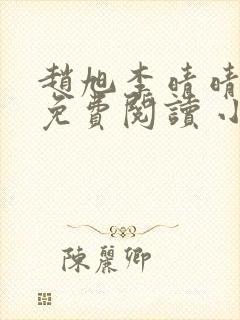 趙旭李晴晴
免費閱讀小
陳麗卿